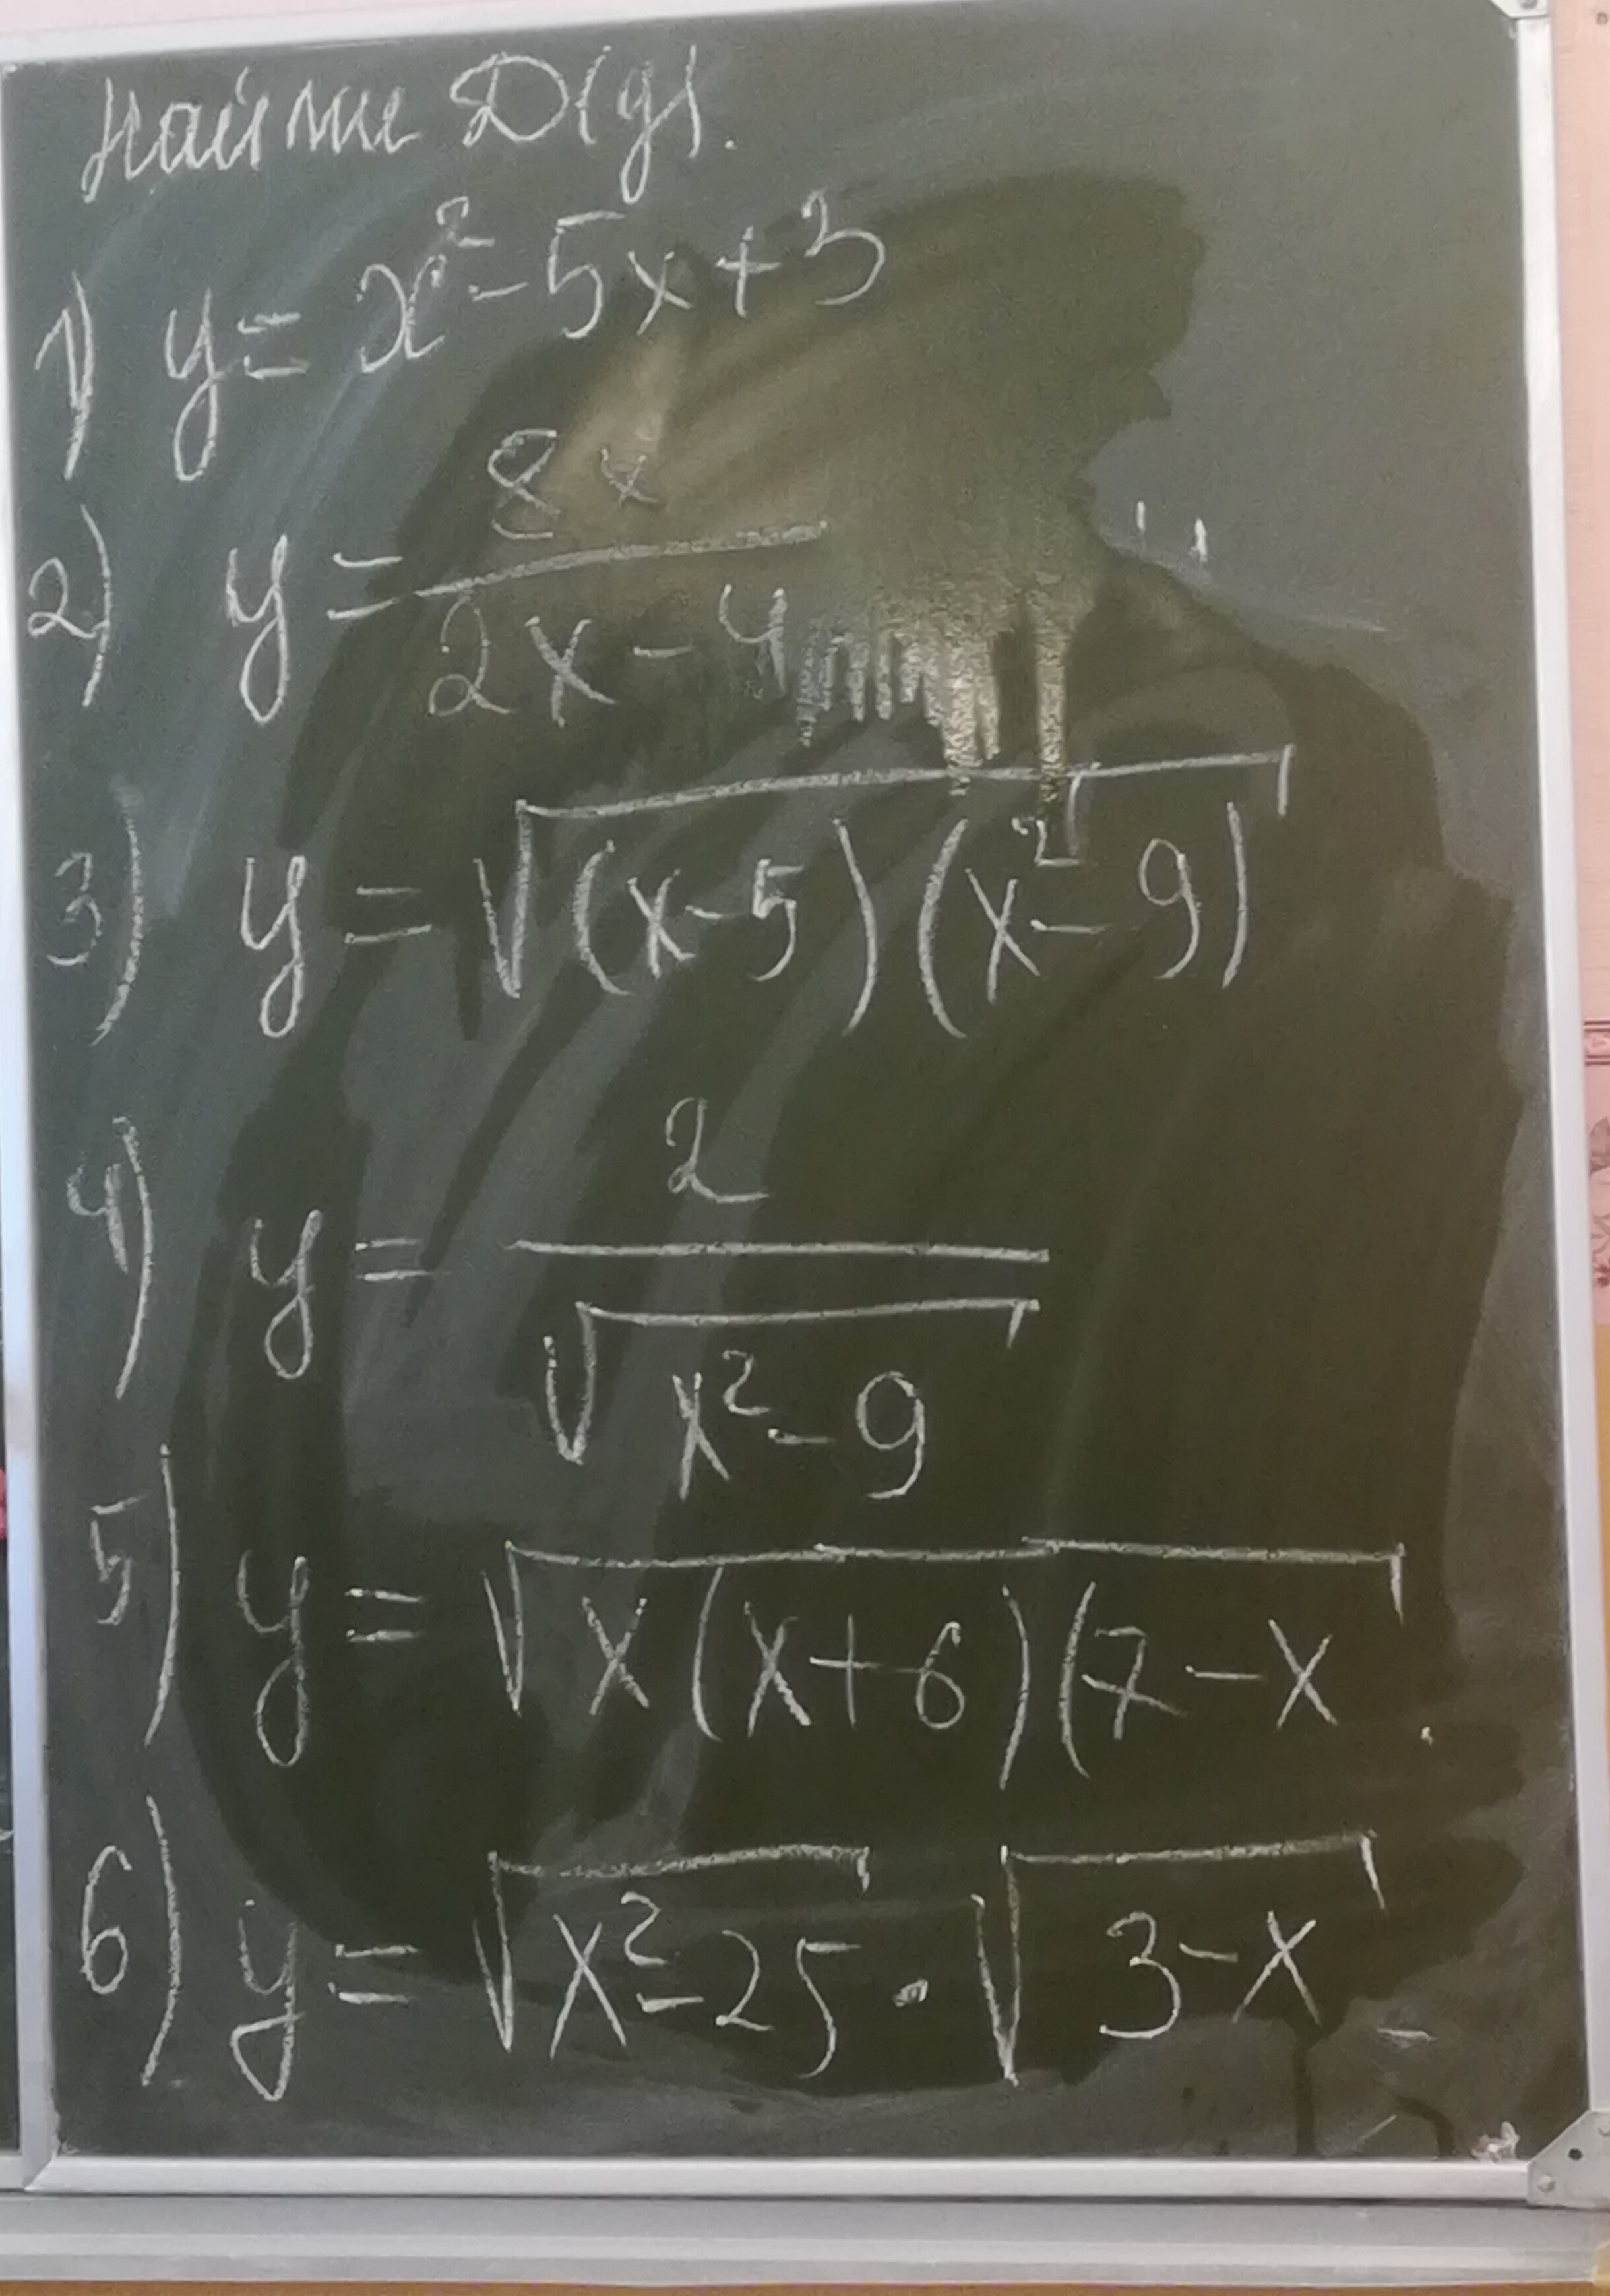 Найти D(y).
1) y = x² - 5x + 3
2) y = 8x / (2x - 4)
3) y = √((x-5)(x²-9))
4) y = 2 / √(x² - 9)
5) y = √(x(x+6)(7-x
6) y = √(x²-25) · √(3-x)